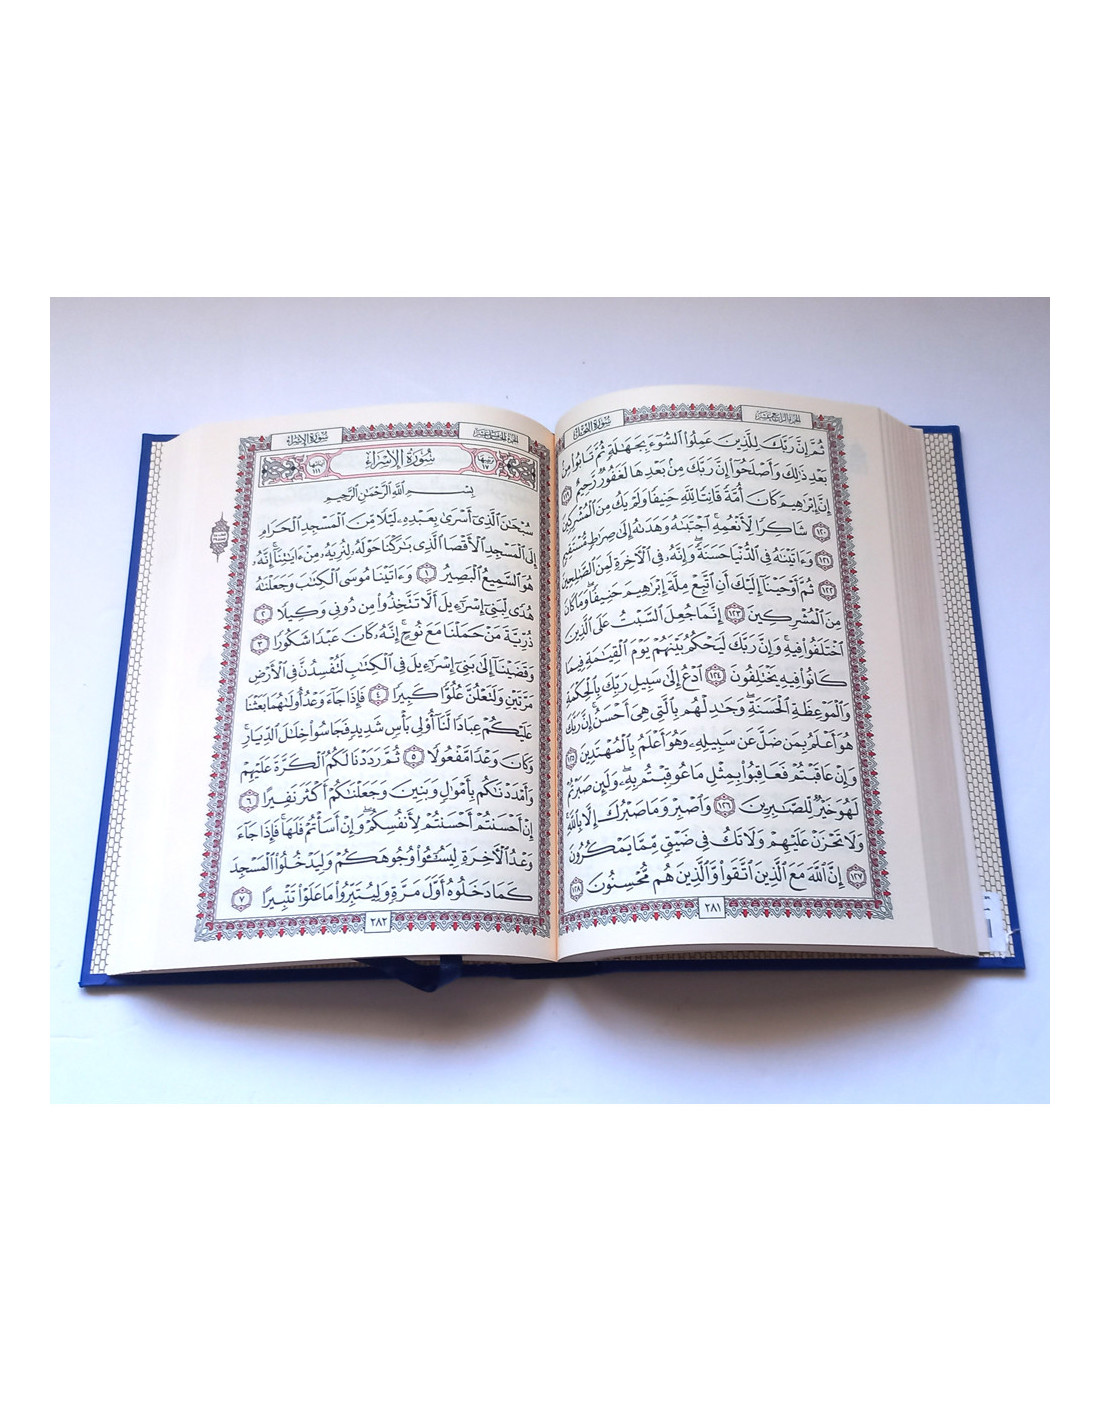 سُورَةُ النَّحْلِ
الجُزْءُ الرَّابِعَ عَشَرَ
ثُمَّ إِنَّ رَبَّكَ لِلَّذِينَ عَمِلُوا۟ ٱلسُّوٓءَ بِجَهَٰلَةٍ ثُمَّ تَابُوا۟ مِنۢ
بَعْدِ ذَٰلِكَ وَأَصْلَحُوٓا۟ إِنَّ رَبَّكَ مِنۢ بَعْدِهَا لَغَفُورٌ رَّحِيمٌ ١١٩
إِنَّ إِبْرَٰهِيمَ كَانَ أُمَّةً قَانِتًا لِّلَّهِ حَنِيفًا وَلَمْ يَكُ مِنَ ٱلْمُشْرِكِينَ
١٢٠ شَاكِرًا لِّأَنْعُمِهِ ۚ ٱجْتَبَىٰهُ وَهَدَىٰهُ إِلَىٰ صِرَٰطٍ مُّسْتَقِيمٍ
١٢١ وَءَاتَيْنَٰهُ فِى ٱلدُّنْيَا حَسَنَةً ۖ وَإِنَّهُۥ فِى ٱلْءَاخِرَةِ لَمِنَ ٱلصَّٰلِحِينَ
١٢٢ ثُمَّ أَوْحَيْنَآ إِلَيْكَ أَنِ ٱتَّبِعْ مِلَّةَ إِبْرَٰهِيمَ حَنِيفًا ۖ وَمَا كَانَ
مِنَ ٱلْمُشْرِكِينَ ١٢٣ إِنَّمَا جُعِلَ ٱلسَّبْتُ عَلَى ٱلَّذِينَ
ٱخْتَلَفُوا۟ فِيهِ ۚ وَإِنَّ رَبَّكَ لَيَحْكُمُ بَيْنَهُمْ يَوْمَ ٱلْقِيَٰمَةِ فِيمَا
كَانُوا۟ فِيهِ يَخْتَلِفُونَ ١٢٤ ٱدْعُ إِلَىٰ سَبِيلِ رَبِّكَ بِٱلْحِكْمَةِ
وَٱلْمَوْعِظَةِ ٱلْحَسَنَةِ ۖ وَجَٰدِلْهُم بِٱلَّتِى هِىَ أَحْسَنُ ۚ إِنَّ رَبَّكَ
هُوَ أَعْلَمُ بِمَن ضَلَّ عَن سَبِيلِهِۦ ۖ وَهُوَ أَعْلَمُ بِٱلْمُهْتَدِينَ ١٢٥
وَإِنْ عَاقَبْتُمْ فَعَاقِبُوا۟ بِمِثْلِ مَا عُوقِبْتُم بِهِۦ ۖ وَلَئِن صَبَرْتُمْ
لَهُوَ خَيْرٌ لِّلصَّٰبِرِينَ ١٢٦ وَٱصْبِرْ وَمَا صَبْرُكَ إِلَّا بِٱللَّهِ ۚ
وَلَا تَحْزَنْ عَلَيْهِمْ وَلَا تَكُ فِى ضَيْقٍ مِّمَّا يَمْكُرُونَ
١٢٧ إِنَّ ٱللَّهَ مَعَ ٱلَّذِينَ ٱتَّقَوا۟ وَّٱلَّذِينَ هُم مُّحْسِنُونَ ١٢٨
٢٨١
سُورَةُ الإِسْرَاءِ
الجُزْءُ الخَامِسَ عَشَرَ
ترتيبها ١٧ سُورَةُ الإِسْرَاءِ آياتها ١١١
بِسْمِ ٱللَّهِ ٱلرَّحْمَٰنِ ٱلرَّحِيمِ
سُبْحَٰنَ ٱلَّذِىٓ أَسْرَىٰ بِعَبْدِهِۦ لَيْلًا مِّنَ ٱلْمَسْجِدِ ٱلْحَرَامِ
إِلَى ٱلْمَسْجِدِ ٱلْأَقْصَا ٱلَّذِى بَٰرَكْنَا حَوْلَهُۥ لِنُرِيَهُۥ مِنْ ءَايَٰتِنَآ ۚ إِنَّهُۥ
هُوَ ٱلسَّمِيعُ ٱلْبَصِيرُ ١ وَءَاتَيْنَا مُوسَى ٱلْكِتَٰبَ وَجَعَلْنَٰهُ
هُدًى لِّبَنِىٓ إِسْرَٰٓءِيلَ أَلَّا تَتَّخِذُوا۟ مِن دُونِى وَكِيلًا ٢
ذُرِّيَّةَ مَنْ حَمَلْنَا مَعَ نُوحٍ ۚ إِنَّهُۥ كَانَ عَبْدًا شَكُورًا ٣
وَقَضَيْنَآ إِلَىٰ بَنِىٓ إِسْرَٰٓءِيلَ فِى ٱلْكِتَٰبِ لَتُفْسِدُنَّ فِى ٱلْأَرْضِ
مَرَّتَيْنِ وَلَتَعْلُنَّ عُلُوًّا كَبِيرًا ٤ فَإِذَا جَآءَ وَعْدُ أُولَىٰهُمَا بَعَثْنَا
عَلَيْكُمْ عِبَادًا لَّنَآ أُو۟لِى بَأْسٍ شَدِيدٍ فَجَاسُوا۟ خِلَٰلَ ٱلدِّيَارِ ۚ
وَكَانَ وَعْدًا مَّفْعُولًا ٥ ثُمَّ رَدَدْنَا لَكُمُ ٱلْكَرَّةَ عَلَيْهِمْ
وَأَمْدَدْنَٰكُم بِأَمْوَٰلٍ وَبَنِينَ وَجَعَلْنَٰكُمْ أَكْثَرَ نَفِيرًا ٦
إِنْ أَحْسَنتُمْ أَحْسَنتُمْ لِأَنفُسِكُمْ ۖ وَإِنْ أَسَأْتُمْ فَلَهَا ۚ فَإِذَا جَآءَ
وَعْدُ ٱلْءَاخِرَةِ لِيَسُۥٓـُٔوا۟ وُجُوهَكُمْ وَلِيَدْخُلُوا۟ ٱلْمَسْجِدَ
كَمَا دَخَلُوهُ أَوَّلَ مَرَّةٍ وَلِيُتَبِّرُوا۟ مَا عَلَوْا۟ تَتْبِيرًا ٧
٢٨٢